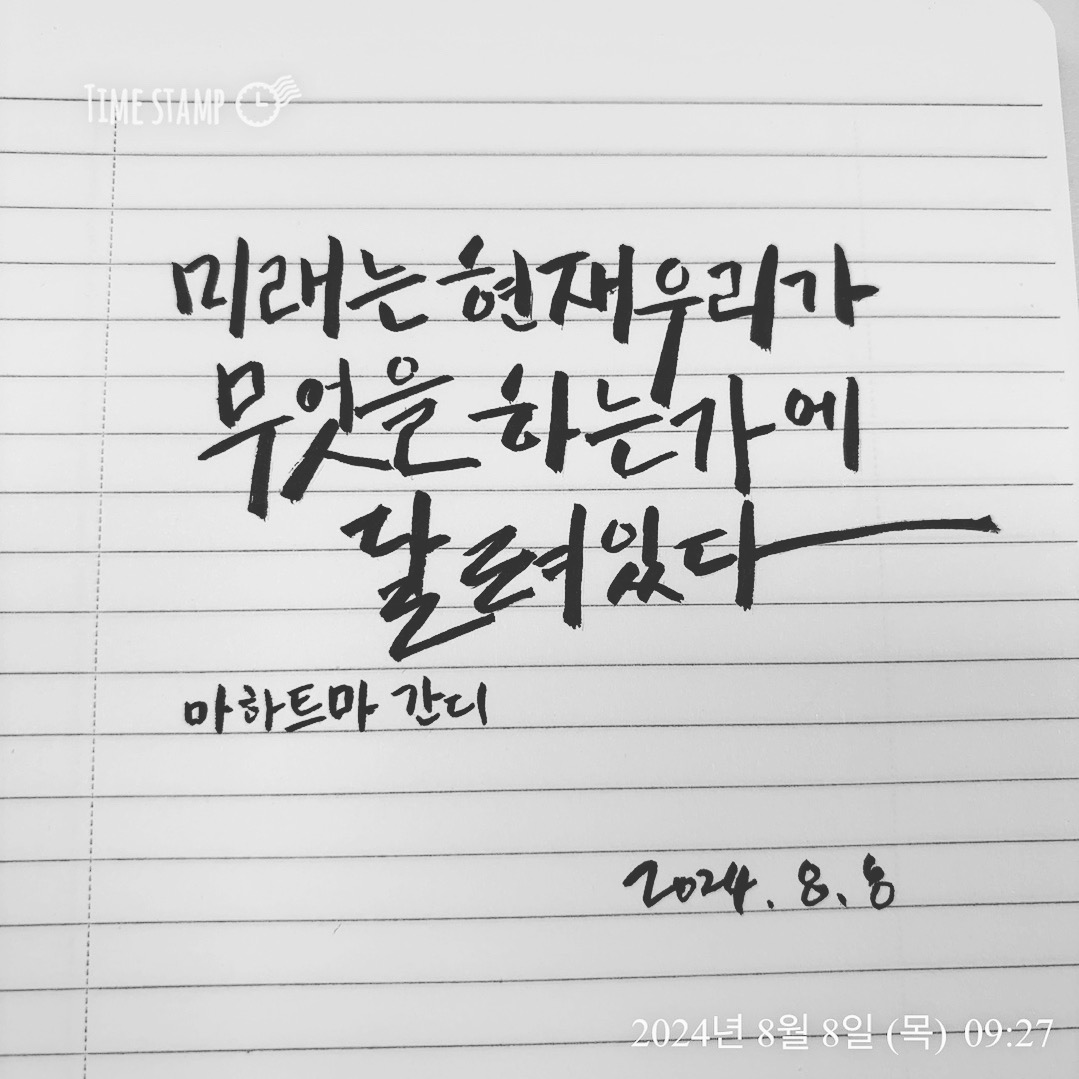 TIME STAMP
미래는 현재 우리가
무엇을 하는가에
달려있다
마하트마 간디
2024. 8. 8
2024년 8월 8일 (목) 09:27